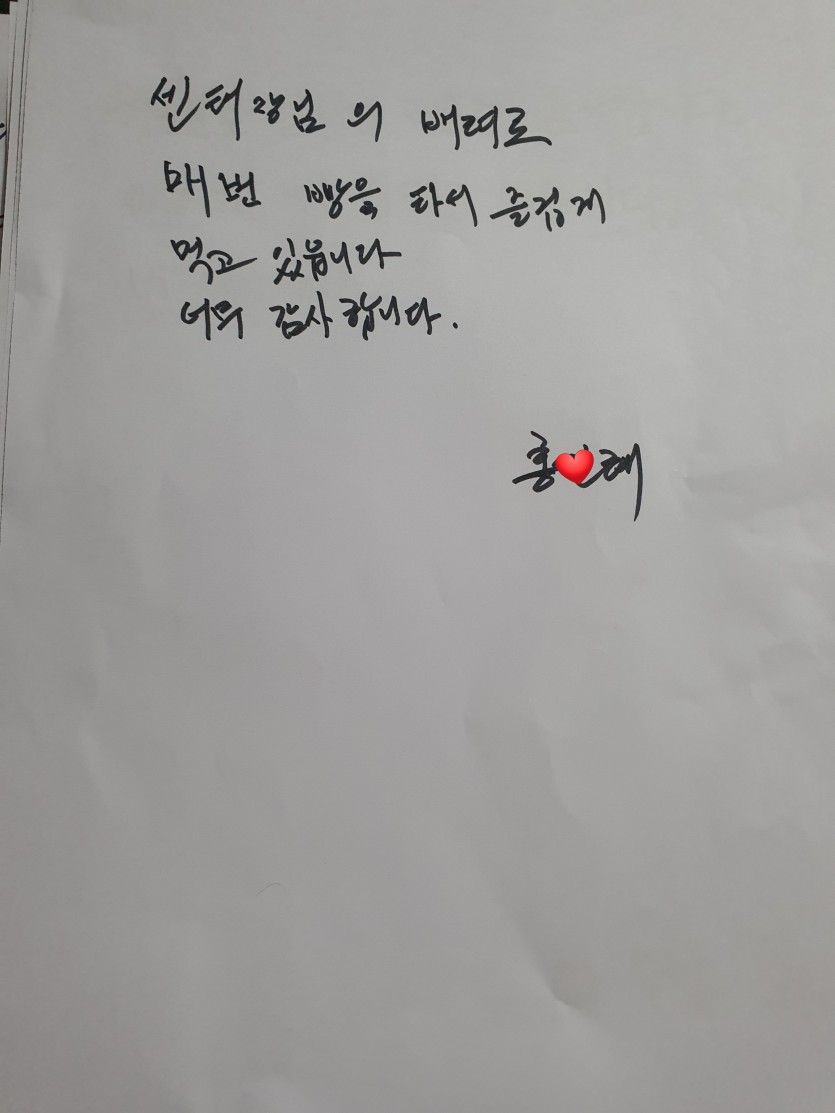 센터장님 의 배려로
매번 빵을 타서 즐겁게
먹고 있읍니다
너무 감사합니다.